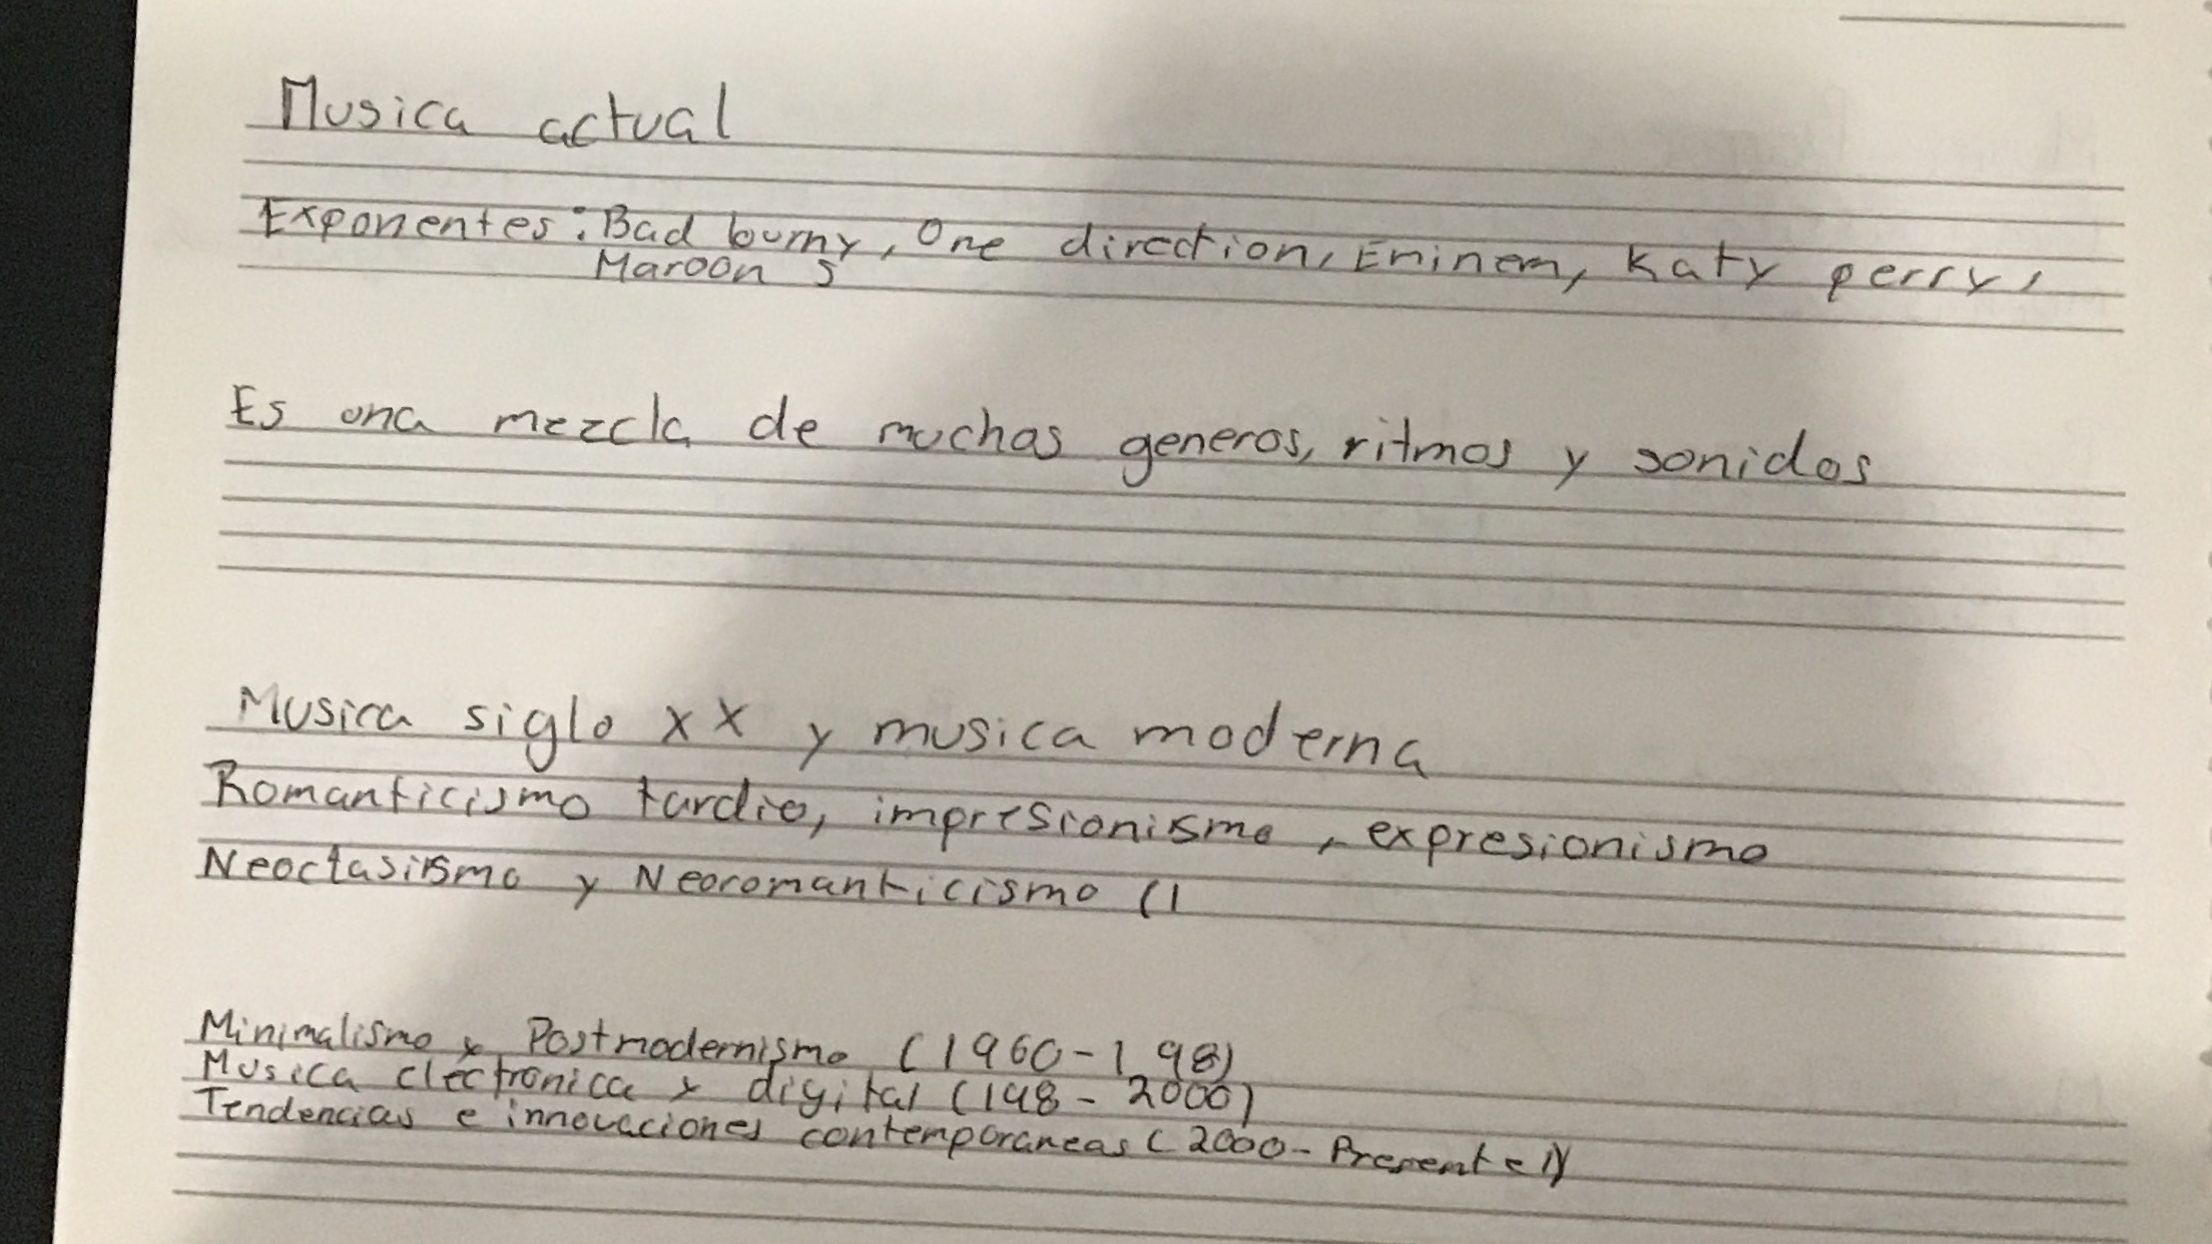 Musica actual
Exponentes: Bad bunny, One direction, Eminem, Katy perry,
Maroon 5
Es una mezcla de muchos generos, ritmos y sonidos
Musica siglo XX y musica moderna
Romanticismo tardio, impresionismo, expresionismo
Neoclasismo y Neoromanticismo (1
Minimalismo y Postmodernismo (1960-198)
Musica electronica y digital (198-2000)
Tendencias e innovaciones contemporaneas (2000-Presente)